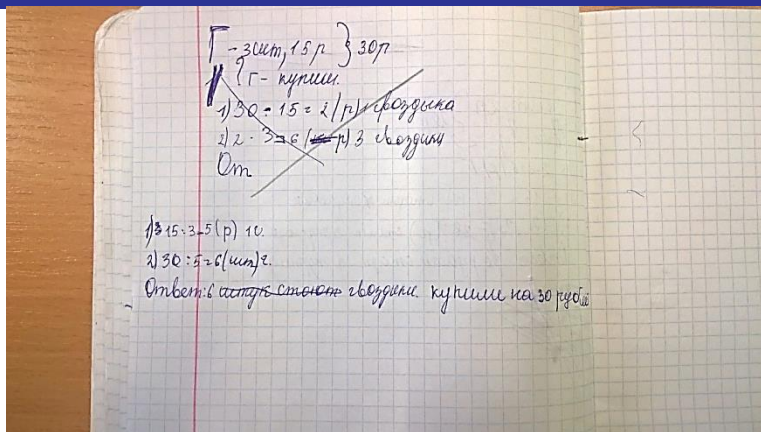 Г - 3шт, 15 р } 30р
? г - купим.
1) 30 : 15 = 2 (р) 1 гвоздика
2) 2 · 3 = 6 (р) 3 гвоздики
От
1) 15:3=5 (р) 1г.
2) 30:5=6 (шт) г.
Ответ: 6 штук стоют гвоздики купили на 30 рублей